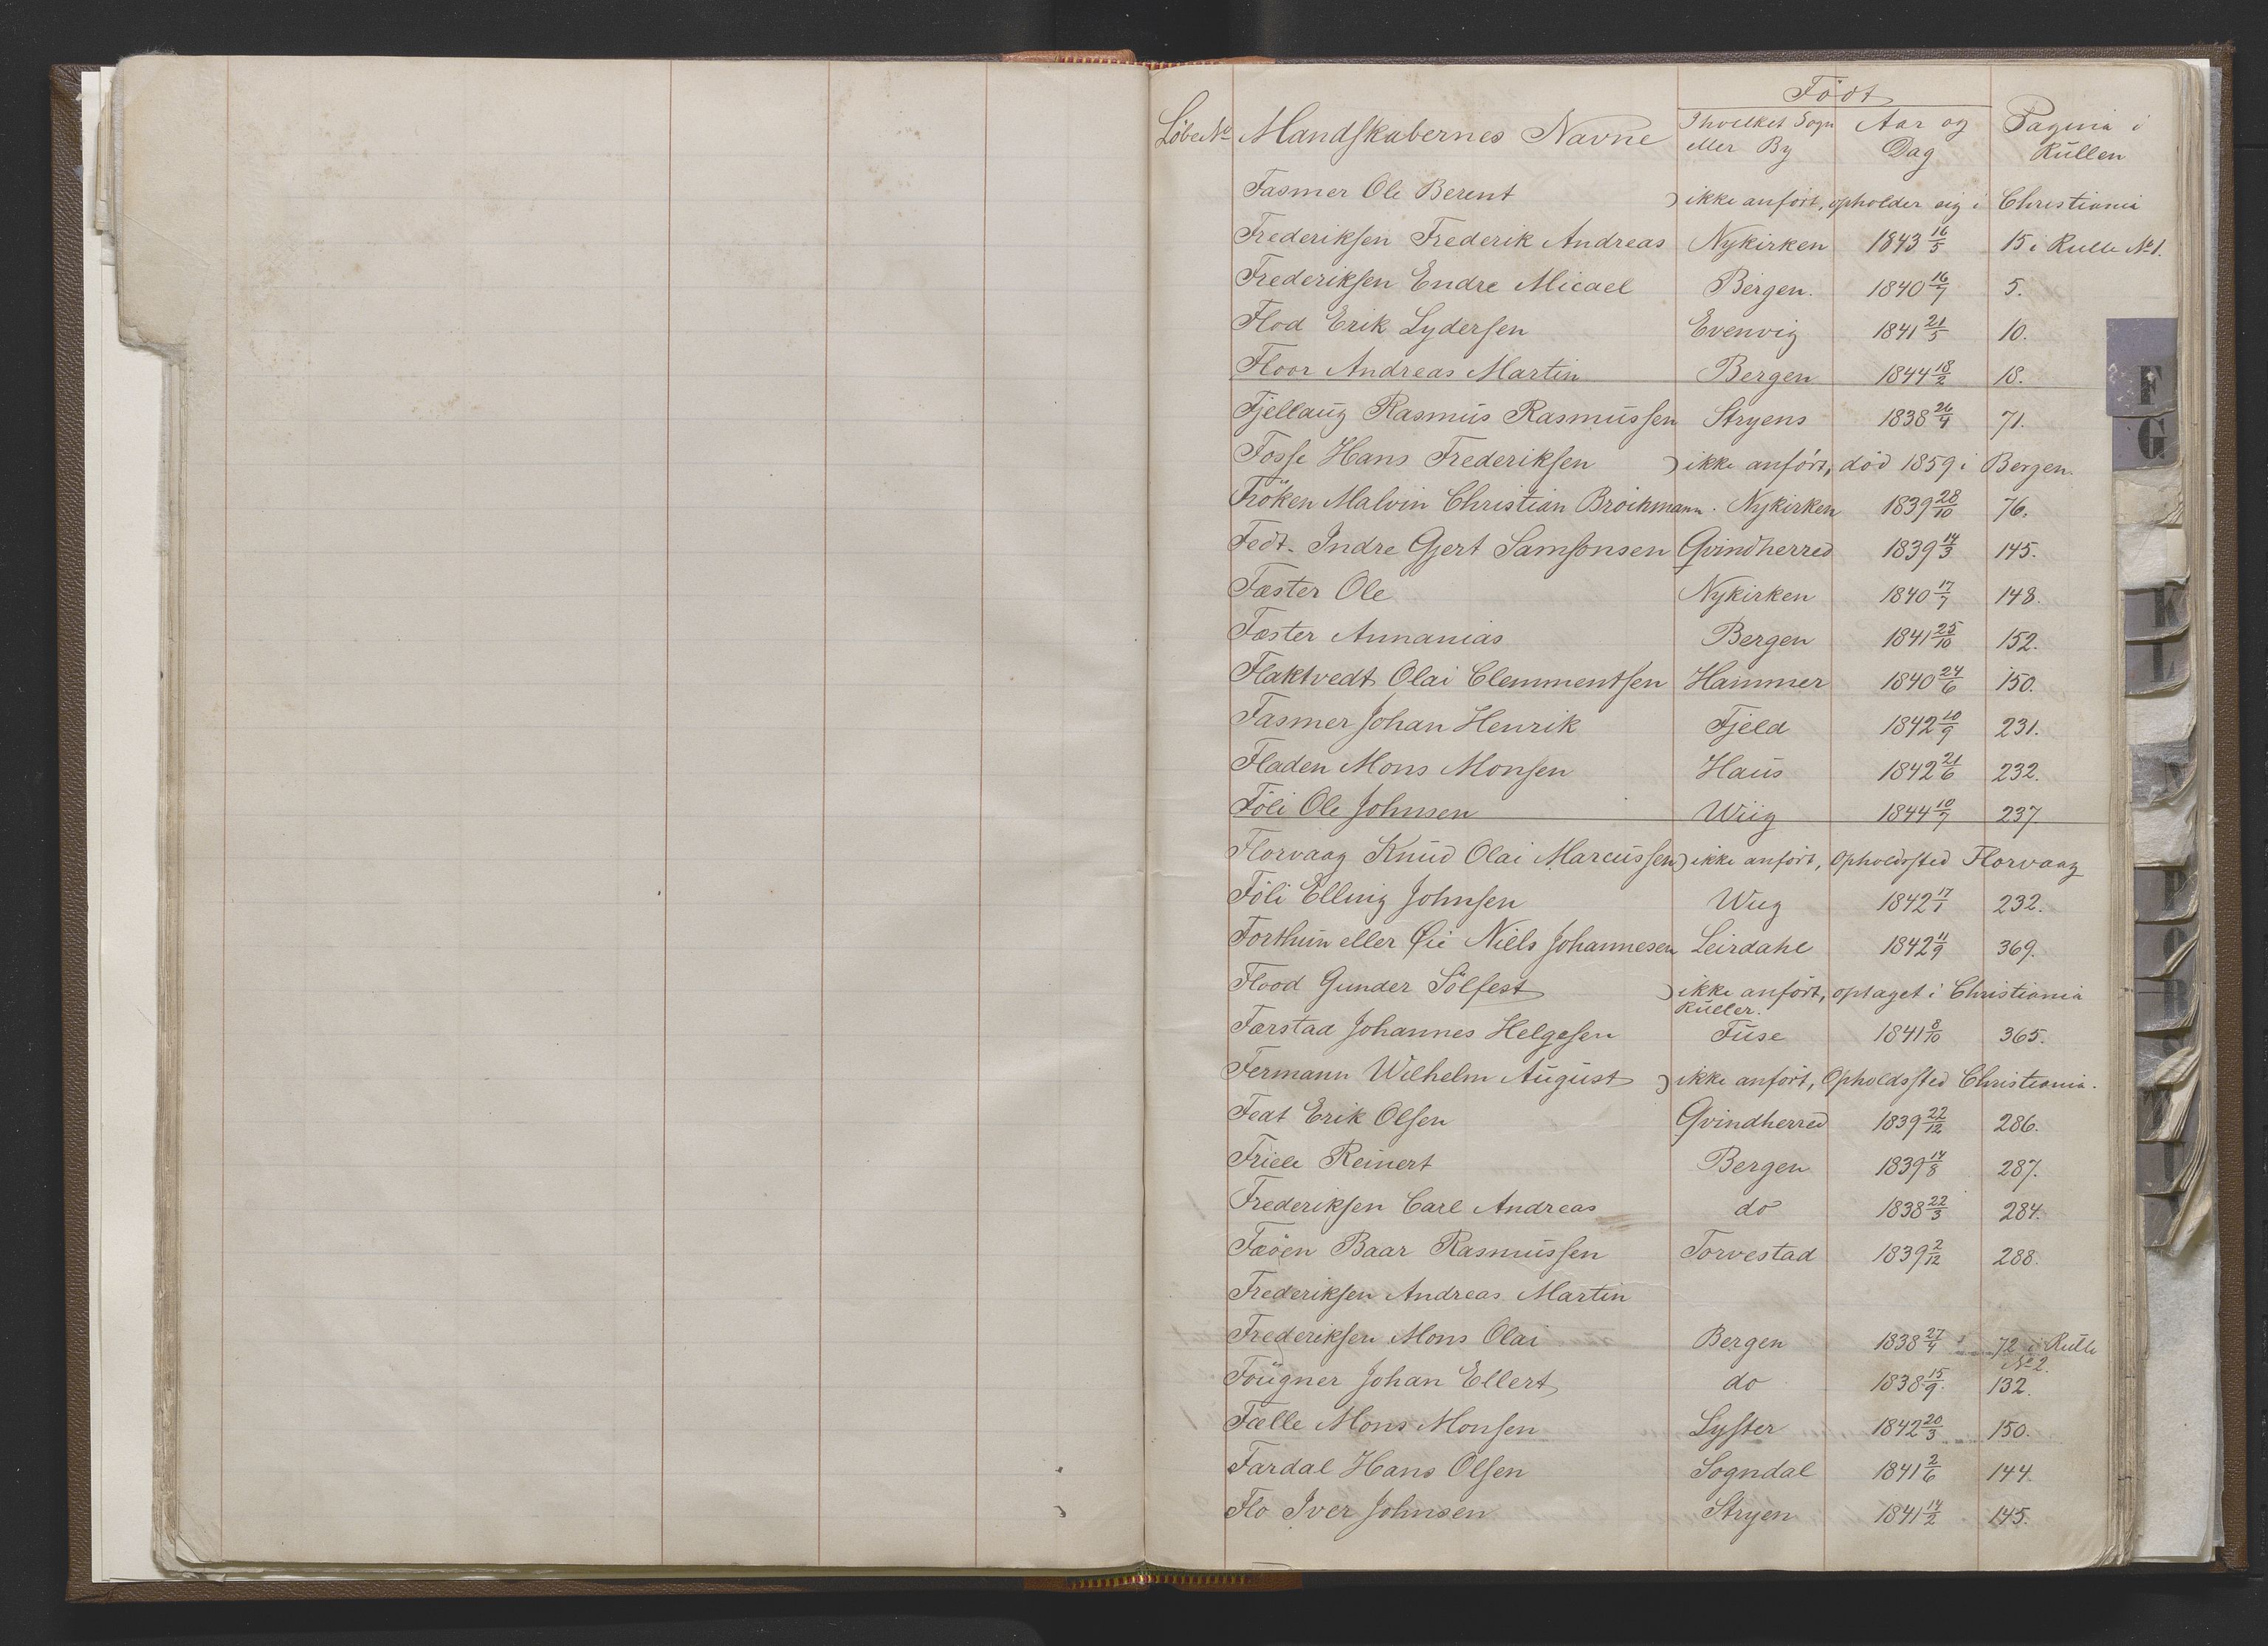 Født
LøbeNo Mandskabernes Navne I hvilket Sogn eller By Aar og Dag Pagina i Rullen
Fasmer Ole Berent ) ikke anført, opholder sig i Christiania
Frederiksen Frederik Andreas Nykirken 1843 16/5 15 i Rulle No 1.
Frederiksen Endre Micael Bergen. 1840 16/7 5.
Flod Erik Lydersen Evenvig 1841 21/5 10.
Floor Andreas Martin Bergen 1844 18/2 18.
Fjellaug Rasmus Rasmussen Stryens 1838 26/4 71.
Fosse Hans Frederiksen ) ikke anført, død 1859 i Bergen.
Frøken Malvin Christian Broichmann. Nykirken 1839 28/10 76.
Fedt-Indre Gjert Samsonsen Qvindherred 1839 14/3 145.
Fæster Ole Nykirken 1840 17/7 148.
Fæster Annanias Bergen 1841 25/10 152.
Flaktvedt Olai Clemmentsen Hammer 1840 24/6 150.
Fasmer Johan Henrik Fjeld 1842 10/9 231.
Fladen Mons Monsen Haus 1842 21/6 232.
Föli Ole Johnsen Wiig 1844 10/7 237.
Florvaag Knud Olai Marcussen ) ikke anført, Opholdssted Florvaag
Föli Elling Johnsen Wiig 1842 17/1 232.
Forthun eller Øie Niels Johannesen Leirdahl 1842 11/9 369.
Flood Gunder Sölfest ) ikke anført, optaget i Christiania
Ruller.
Færstad Johannes Helgesen Fuse 1841 8/10 365.
Fermann Wilhelm August ) ikke anført, Opholdssted Christiania.
Feat Erik Olsen Qvindherred 1839 22/12 286.
Friele Reinert Bergen 1839 14/8 287.
Frederiksen Carl Andreas do 1838 22/3 284.
Fæöen Baar Rasmussen Torvestad 1839 2/12 288.
Frederiksen Andreas Martin
Frederiksen Mons Olai Bergen 1838 27/4 72 i Rulle
No 2.
Fougner Johan Ellert do 1838 15/9 132.
Fælle Mons Monsen Lyster 1842 20/3 150.
Fardal Hans Olsen Sogndal 1841 2/6 144.
Flo Iver Johnsen Stryen 1841 14/2 145.
F
G
K
L
N
P